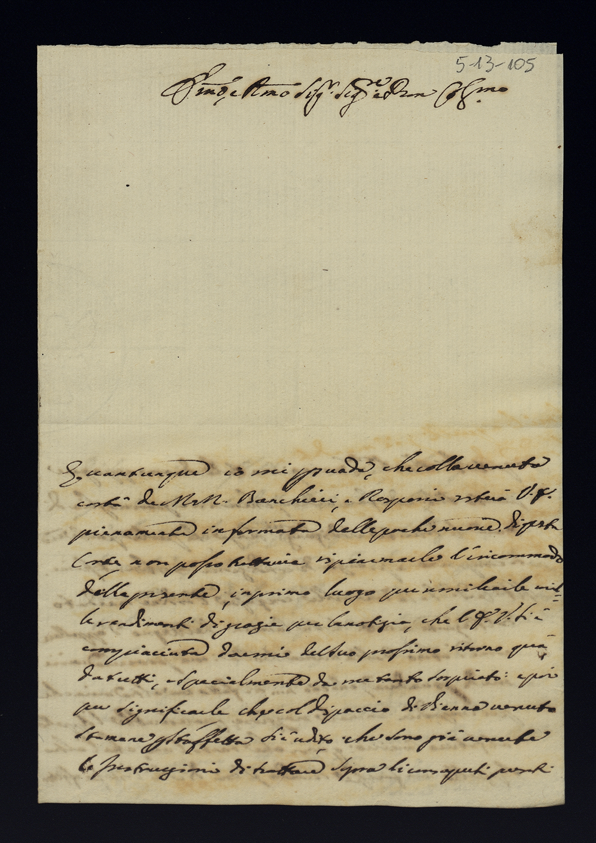 5-13-105
Em̃o, e Rm̃o Sig.r Sig.re e Pron Col.mo
Quantunque io mi psuada, che colla venuta
costà de MM. Banchieri, e Rasponi resterà V. E.
pienamente informata delle poche nuove di questa
Corte, non posso tuttavia risparmiarle l'incommodo
della presente, in primo luogo per umiliarle mil-
le rendimenti di grazie per la notizia, che l'E. V. si è
compiaciuta darmi del suo prossimo ritorno quà
da tutti, e specialmente da me tanto sospirato: e poi
per significarle che col dispaccio di Vienna venuto
stamane p staffetta si è udito, che sono già venute
le Instruzioni di trattare sopra li consaputi punti